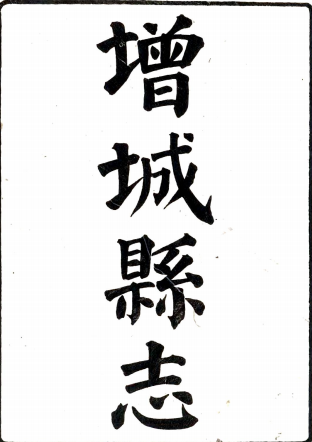 增城縣志